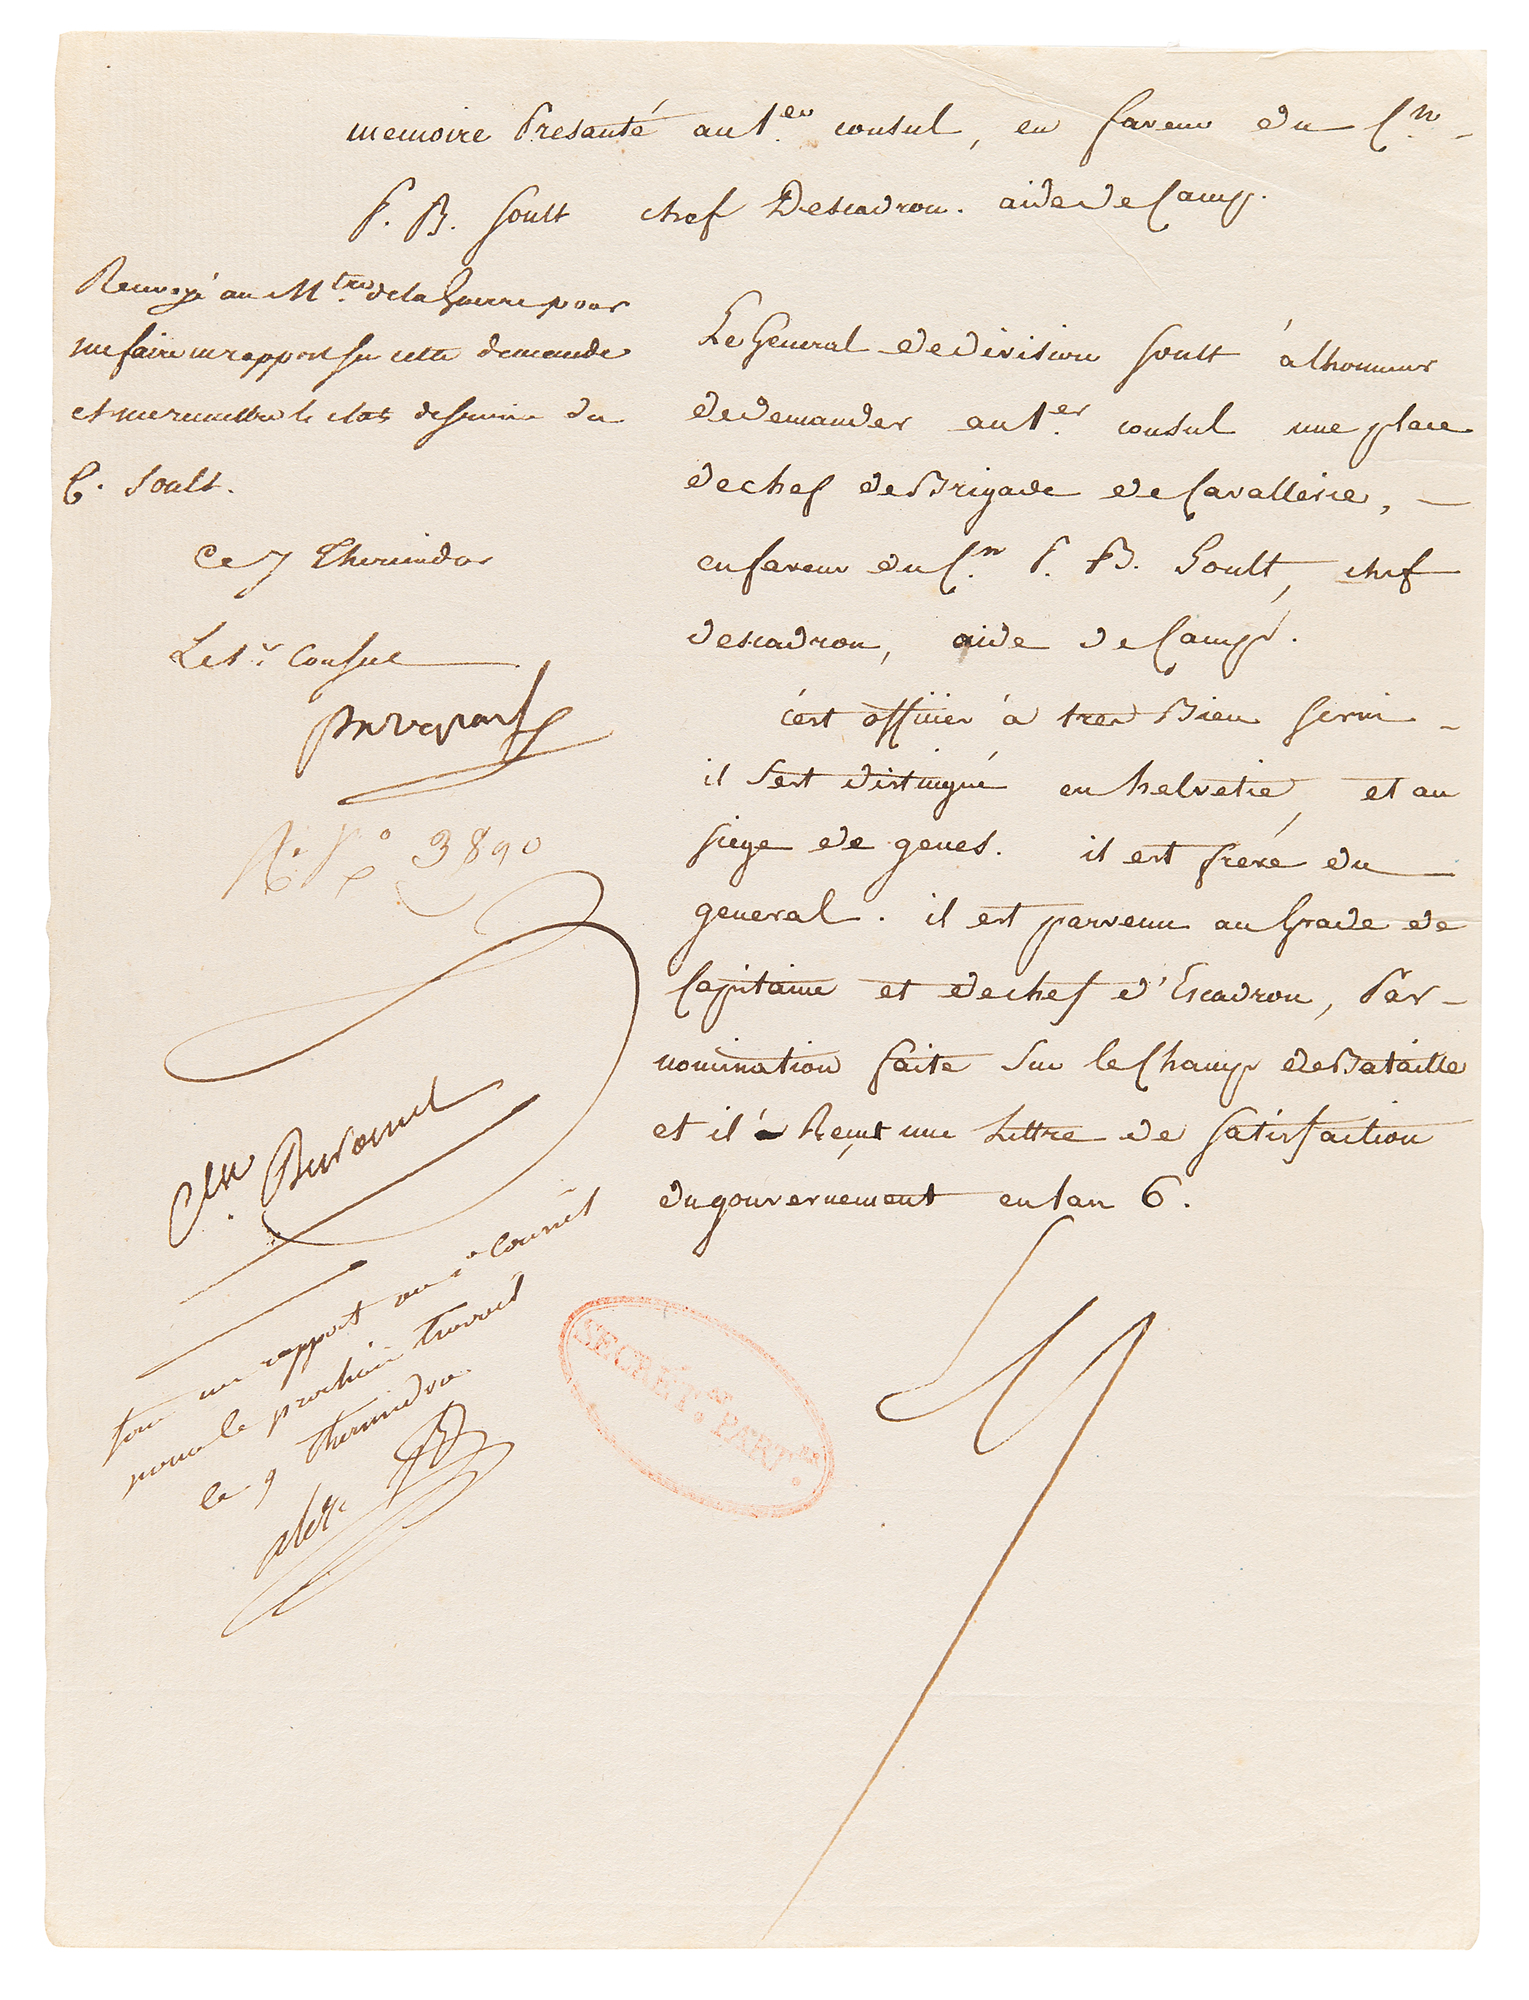 memoire Presanté au 1.er consul, en faveur du C.n
P. B. Soult chef Descadron. aide de Camp.
Renvoyé au M.tre de la Guerre pour
me faire un rapport sur cette demande
et me remettre le etat de service du
C. Soult.
Ce 7 Thermidor
Le 1.r Consul
Bonaparte
N.o 3890
C.en Buromel
faire un rapport au 1.er Consul
pour le prochain travail
le 9 Thermidor
Alex. B
Le General de division Soult à lhonneur
de demander au 1.er consul une place
de chef de Brigade de Cavallerie,
en faveur du C.n P. B. Soult, chef
descadron, aide de Camp.
c'est officier à tres Bien servi
il s'est distingué en helvetie, et au
siege de genes. il est freré du
general. il est parvenu au Grade de
Capitaine et de chef d'Escadron, Par
nomination faite sur le Champ de Bataille
et il à Reçut une Lettre de satisfaction
du gouvernement en lan 6.
SECRÉT.AT PART.ER